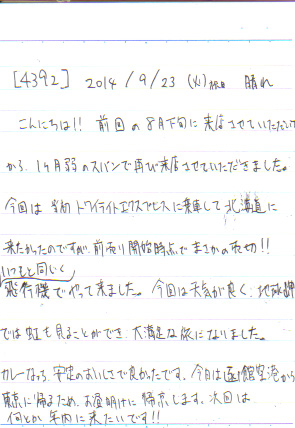 [4392] 2014/9/23 (火)祝日 晴れ
こんにちは!! 前回の8月下旬に来店させていただいて
から、1ヶ月弱のスパンで再び来店させていただきました。
今回は当初トワイライトエクスプレスに乗車して北海道に
来たかったのですが、前売り開始時点でまさかの売切!!
いつもと同じく
飛行機でやって来ました。今回は天気が良く、地球岬
では虹も見ることができ、大満足な旅になりました。
カレーなっ、安定のおいしさで良かったです。今日は函館空港から
東京に帰るため、お昼明けに帰京します。次回は
何とか年内に来たいです!!